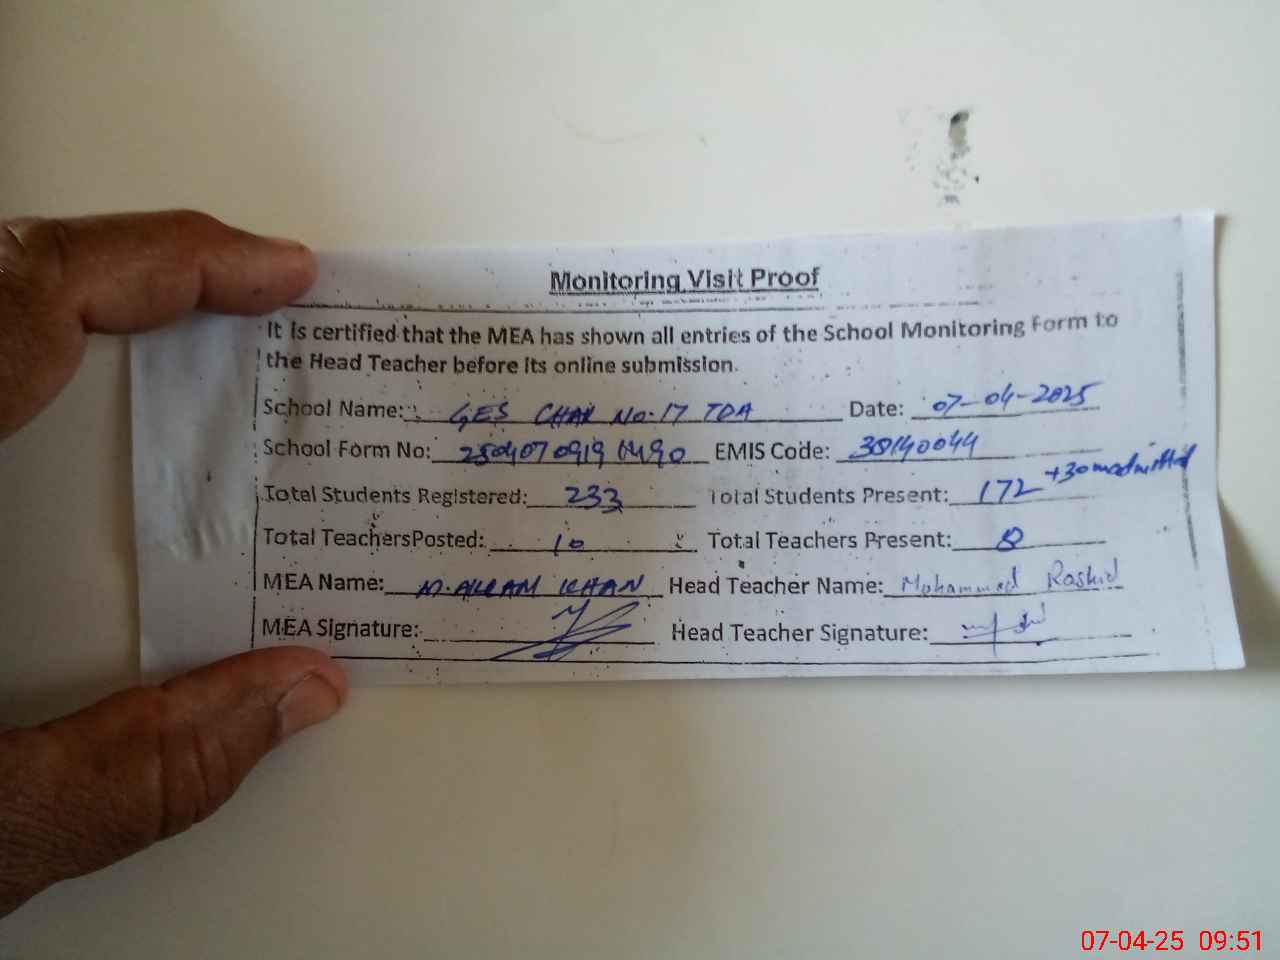 Monitoring Visit Proof
It is certified that the MEA has shown all entries of the School Monitoring Form to
the Head Teacher before its online submission.
School Name: GES CHAK No. 17 TDA Date: 07-04-2025
School Form No: EMIS Code: 38140044
Total Students Registered: 233 Total Students Present: 172 +30
Total Teachers Posted: 10 Total Teachers Present: 8
MEA Name: M. AKRAM KHAN Head Teacher Name: Mohammad Rashid
MEA Signature: Head Teacher Signature:
07-04-25 09:51